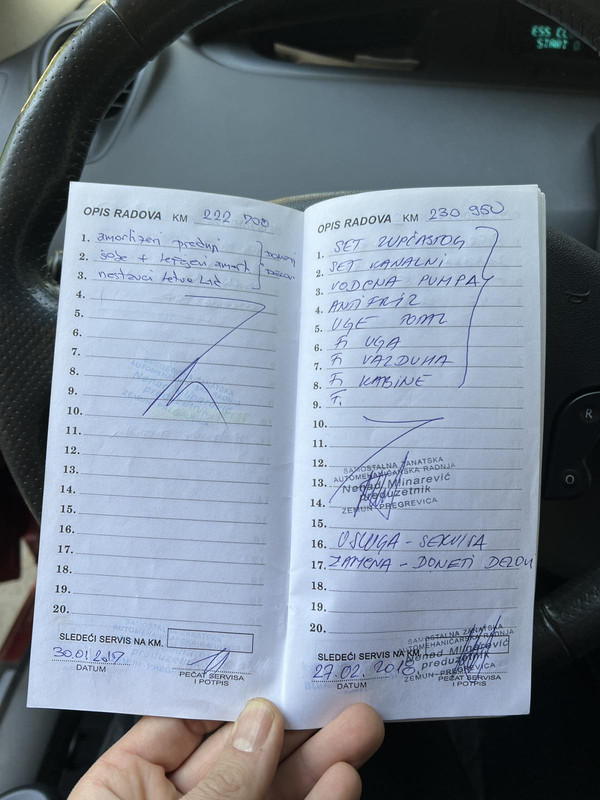 ESS CL
START O
R
O
OPIS RADOVA KM 222 700
1. amortizeri prednji
2. šolje + ležajevi amort
3. nastavci letve
DONETI
DELOVI
4.
5.
6.
7.
8.
9.
10.
11.
12.
13.
14.
15.
16.
17.
18.
19.
20.
SLEDEĆI SERVIS NA KM.
30.01.2017
DATUM
PEČAT SERVISA
I POTPIS
OPIS RADOVA KM 230 950
1. SET ZUPČASTOG
2. SET KANALNI
3. VODENA PUMPA
4. ANTIFRIZ
5. UGE TOTAL
6. F. UGA
7. F. VAZDUHA
8. F. KABINE
9. F.
10.
11.
12.
SAMOSTALNA ZANATSKA
AUTOMEHANIČARSKA RADNJA
13.
Nenad Mlinarević
preduzetnik
14.
ZEMUN, PREGREVICA
15.
16. USLUGA - SERVISA
17. ZAMENA - DONETI DELOVI
18.
19.
20.
SAMOSTALNA ZANATSKA
AUTOMEHANIČARSKA RADNJA
SLEDEĆI SERVIS NA KM.
Nenad Mlinarević
preduzetnik
ZEMUN, PREGREVICA
27.02.2018
DATUM
PEČAT SERVISA
I POTPIS